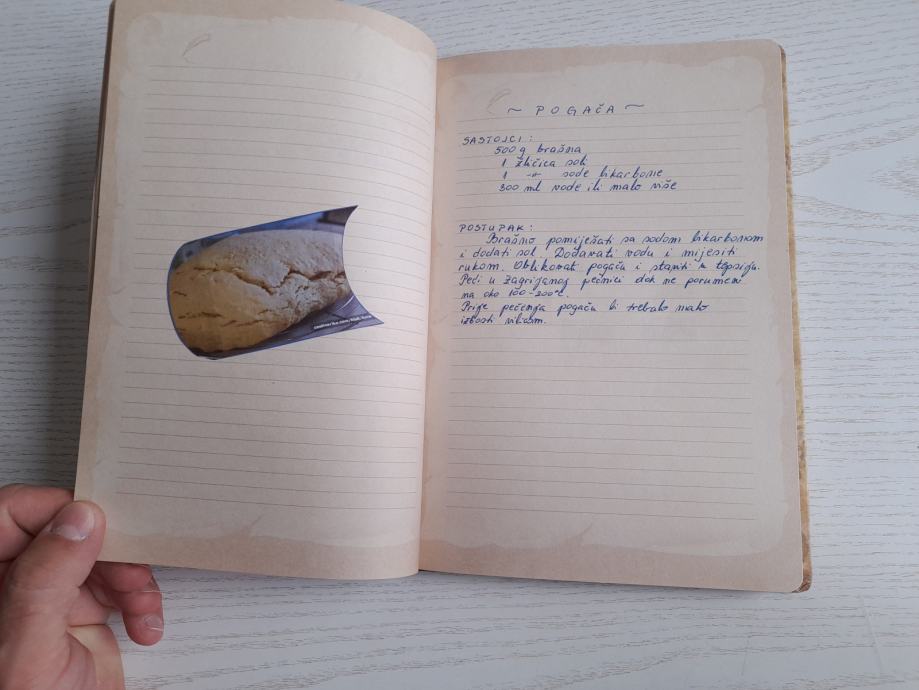 ~ POGAČA ~
SASTOJCI:
500 g brašna
1 žličica soli
1 -"- sode bikarbone
300 ml vode ili malo više
POSTUPAK:
Brašno pomiješati sa sodom bikarbonom
i dodati sol. Dodavati vodu i mijesiti
rukom. Oblikovati pogaču i staviti u tepsiju.
Peći u zagrijanoj pećnici dok ne porumeni
na oko 180-200°C.
Prije pečenja pogaču bi trebalo malo
izbosti vilicom.